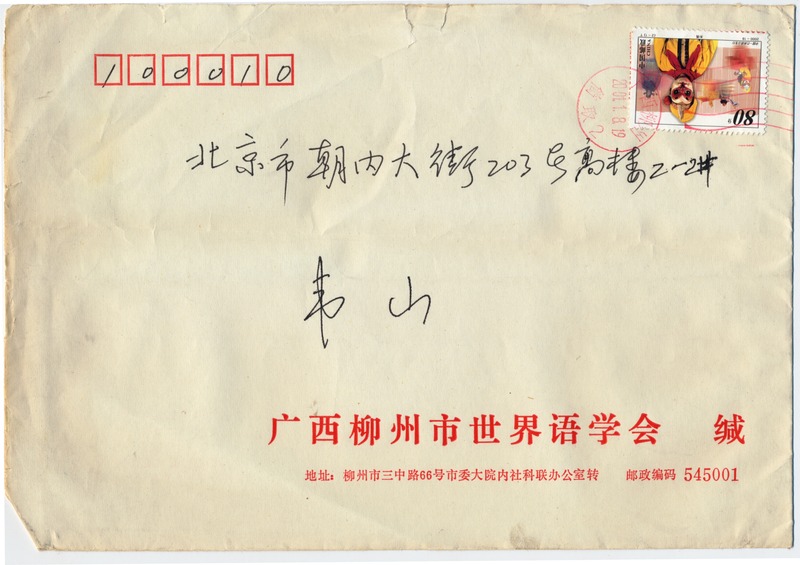 100010
80分
中国邮政
CHINA
2001.1.8.19
北京市朝内大街203号高楼2-
韦山
广西柳州市世界语学会 缄
地址：柳州市三中路66号市委大院内社科联办公室转 邮政编码 545001